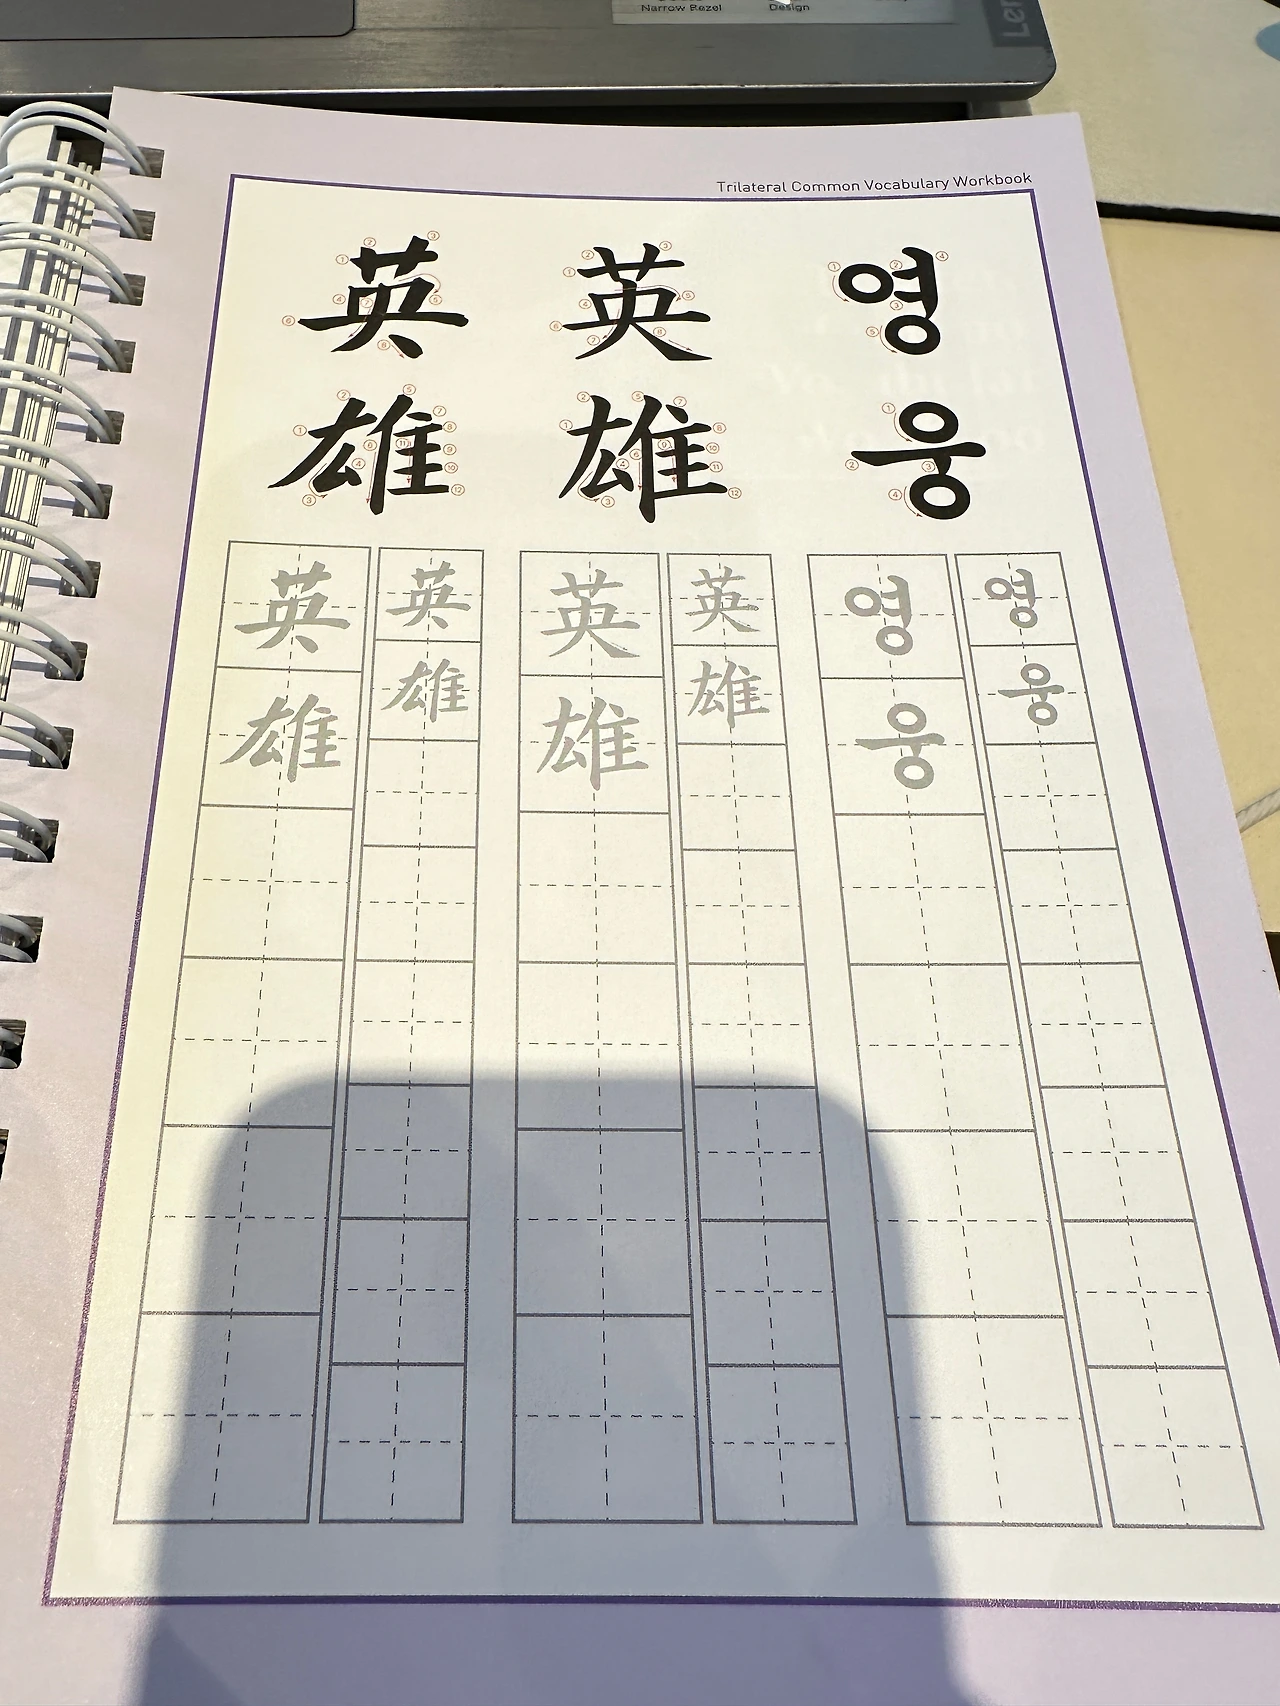 Narrow Bezel
Design
Trilateral Common Vocabulary Workbook
英 英 영
雄 雄 웅
英 英 英 英 영 영
雄 雄 雄 雄 웅 웅